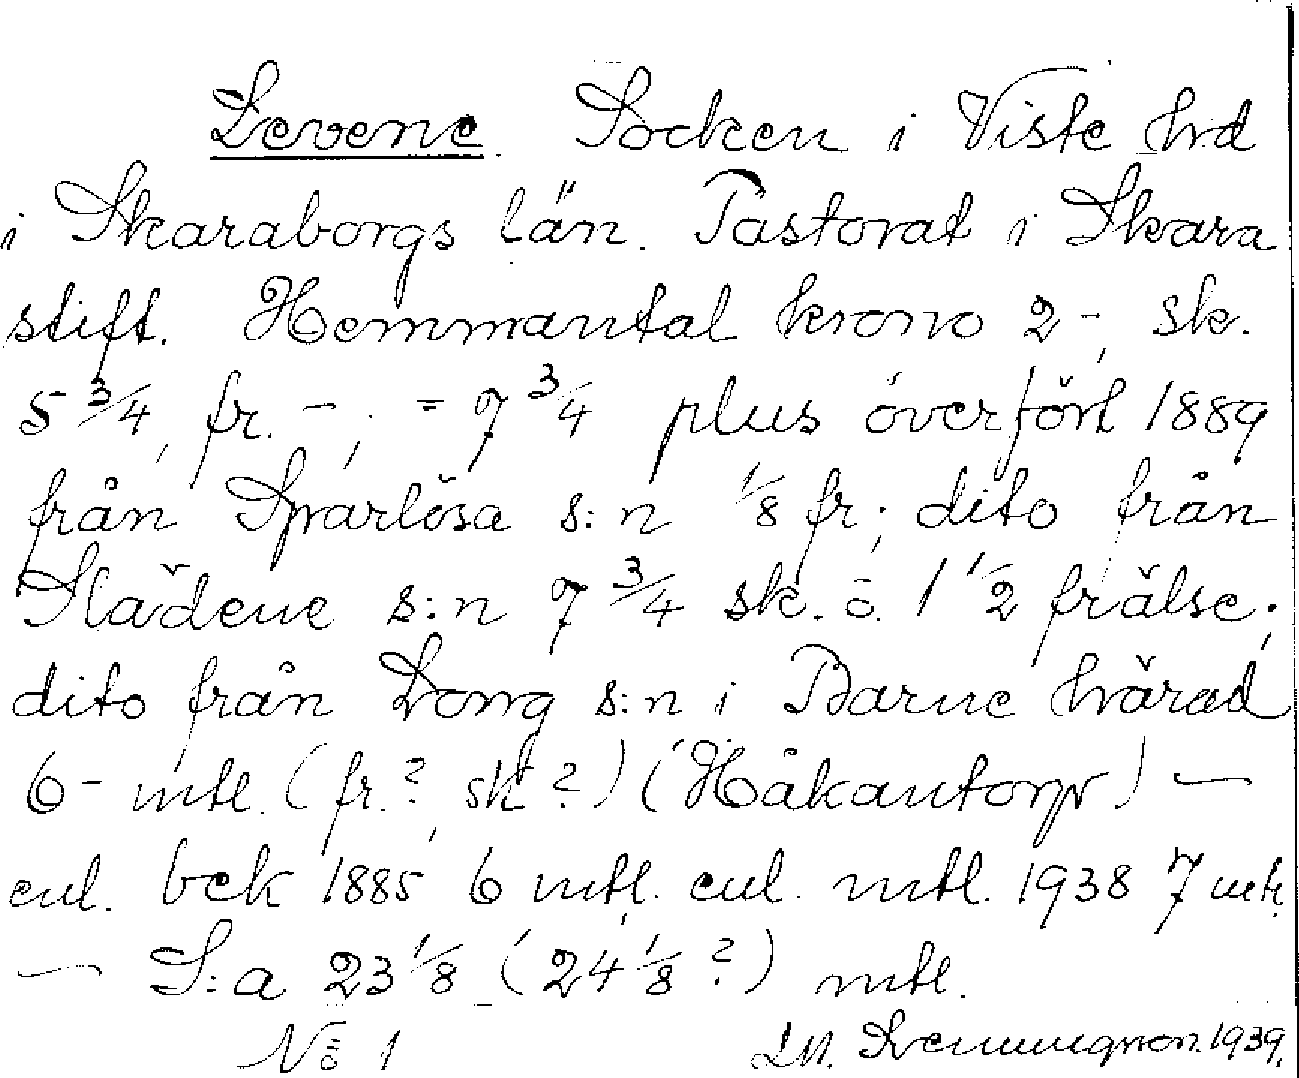 Levene Socken i Viste hrd
i Skaraborgs län. Pastorat i Skara
stift. Hemmantal krono 2 -, sk.
5 3/4, fr. - ; = 7 3/4 plus överfört 1889
från Sparlösa s:n 1/8 fr; dito från
Slädene s:n 7 3/4 sk. o. 1 1/2 frälse;
dito från Long s:n i Barne härad
6 - mtl. (fr.?, sk?) (Håkantorp) —
enl. bek 1885 6 mtl. enl. mtl. 1938 7 mtl.
— S:a 23 1/8 (24 1/8 ?) mtl.
No 1 1939.